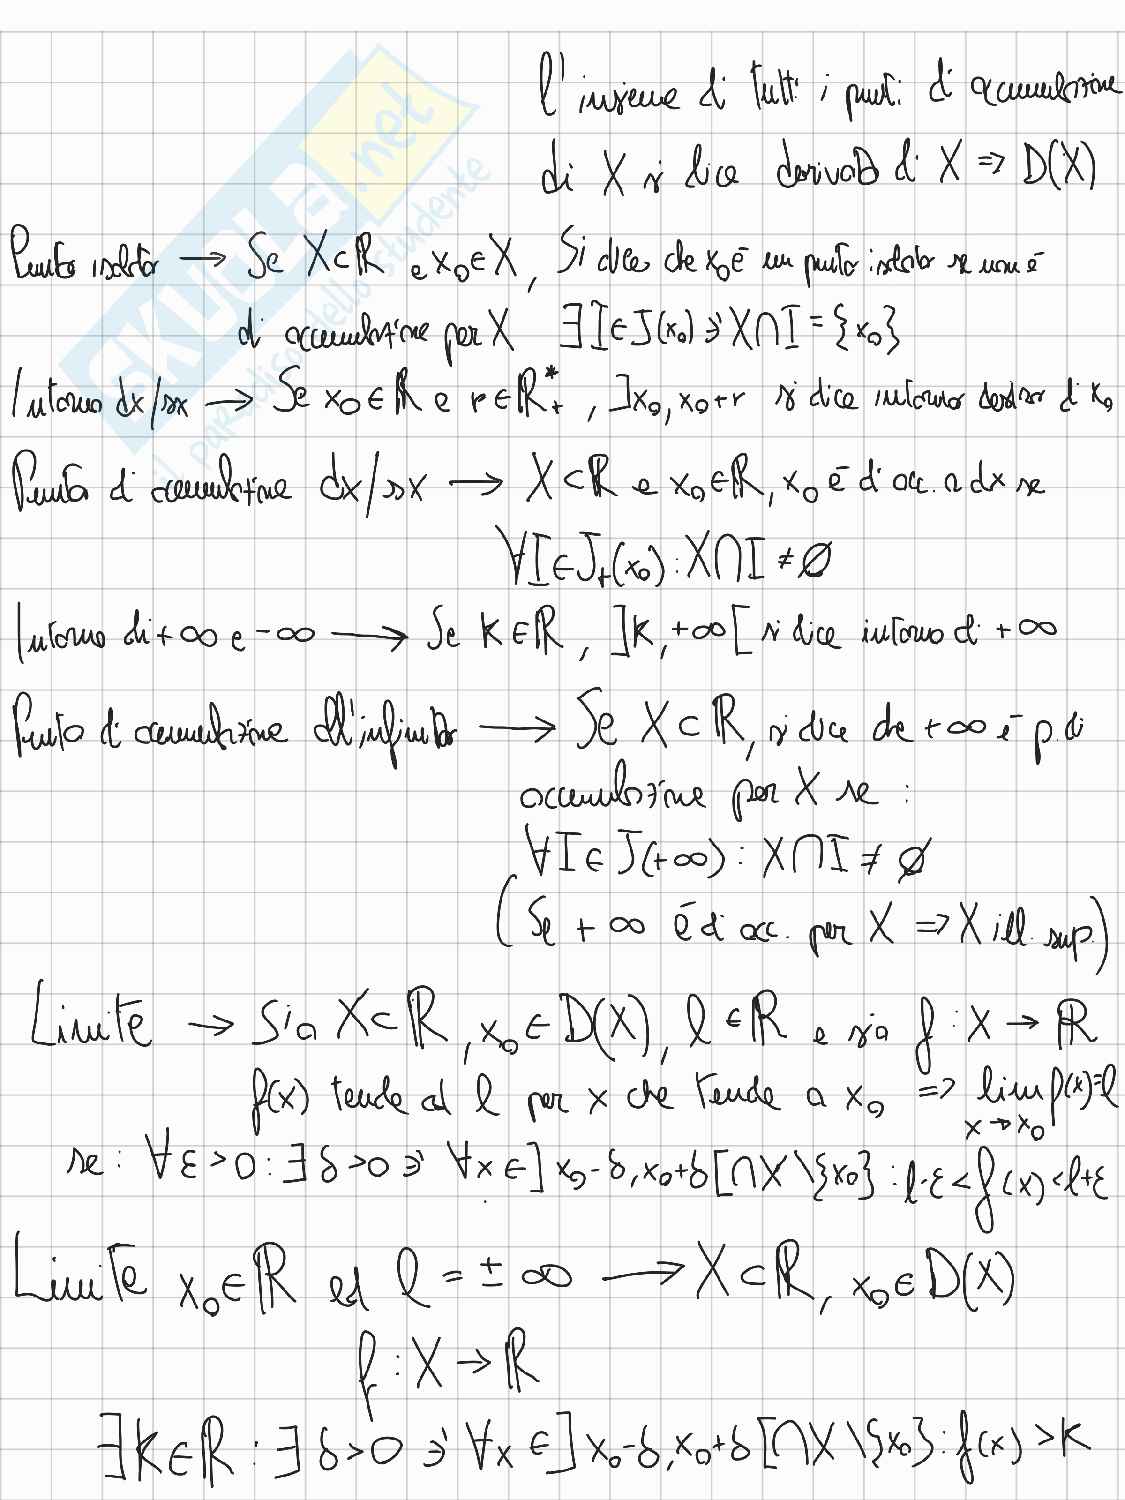 l'insieme di tutti i punti di accumulazione
di X si dice derivato di X ⇒ D(X)
Punto isolato → Se X⊂ℝ e x₀∈X, Si dice che x₀ è un punto isolato se non è
di accumulazione per X ∃I∈J(x₀) ∋' X∩I = {x₀}
Intorno dx/sx → Se x₀∈ℝ e r∈ℝ₊*, ]x₀, x₀+r si dice intorno destro di x₀
Punto di accumulazione dx/sx → X⊂ℝ e x₀∈ℝ, x₀ è di acc. a dx se
∀I∈J₊(x₀): X∩I ≠ ∅
Intorno di +∞ e -∞ → Se K∈ℝ, ]K, +∞[ si dice intorno di +∞
Punto di accumulazione all'infinito → Se X⊂ℝ, si dice che +∞ è p. di
accumulazione per X se :
∀I∈J(+∞): X∩I ≠ ∅
(Se +∞ è di acc. per X ⇒ X ill. sup.)
Limite → Sia X⊂ℝ, x₀∈D(X), l∈ℝ e sia f: X → ℝ
f(x) tende ad l per x che tende a x₀ ⇒ lim f(x)=l
x→x₀
se: ∀ε>0: ∃δ>0 ∋' ∀x∈]x₀-δ, x₀+δ[∩X\{x₀}: l-ε<f(x)<l+ε
Limite x₀∈ℝ ed l = ±∞ → X⊂ℝ, x₀∈D(X)
f: X → ℝ
∃K∈ℝ: ∃δ>0 ∋' ∀x∈]x₀-δ, x₀+δ[∩X\{x₀}: f(x)>K
SKUOLA.net
il paradiso dello studente